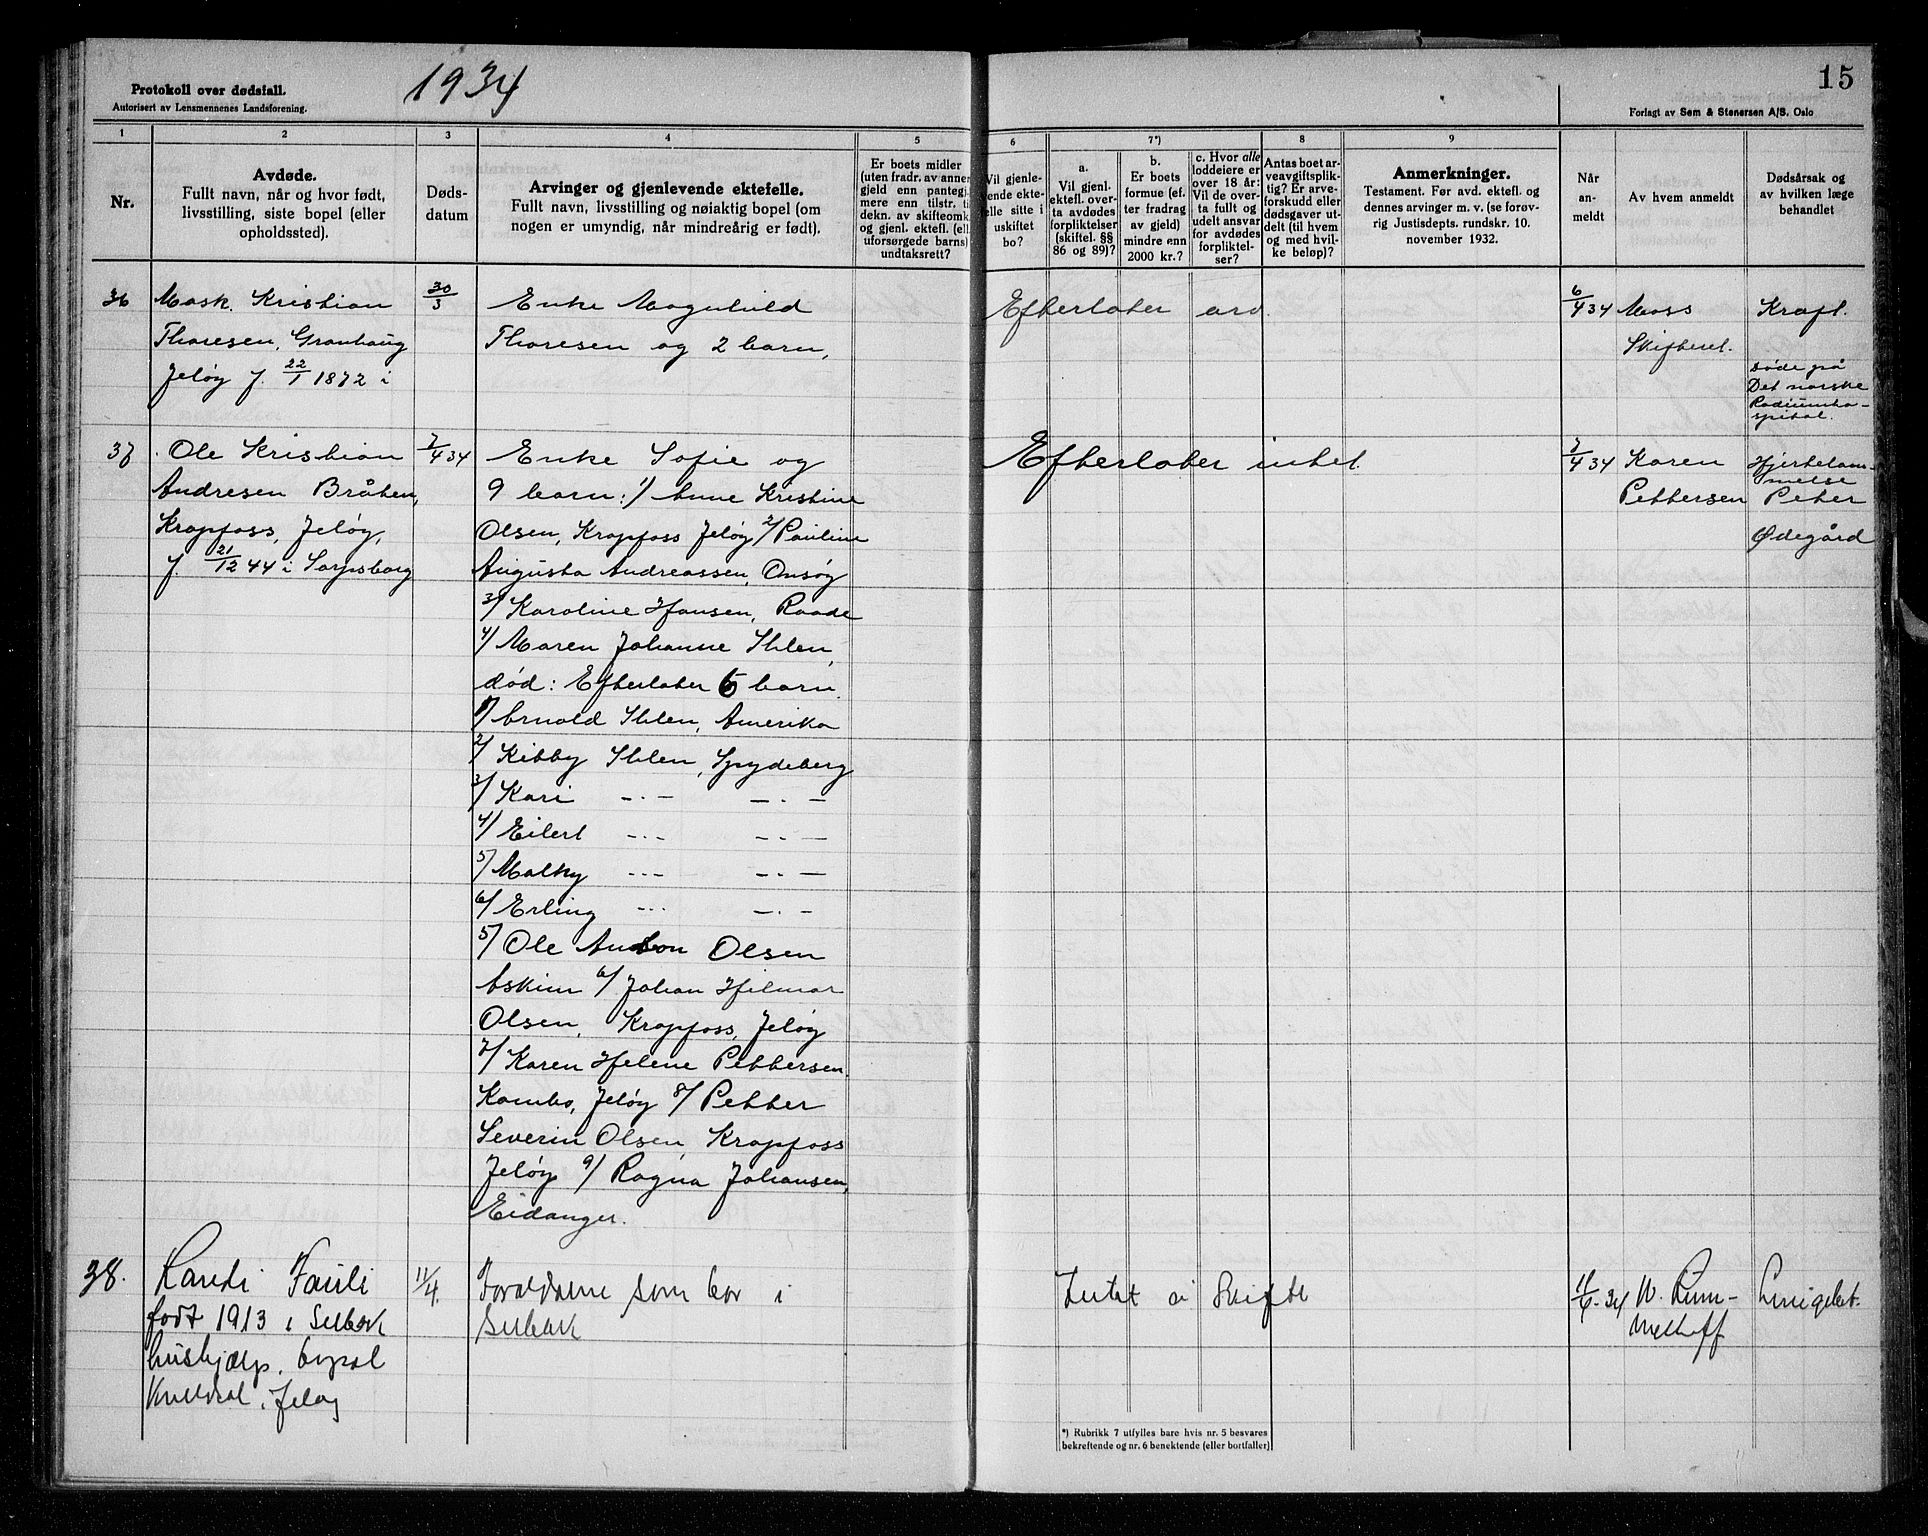 Protokoll over dødsfall.
Autorisert av Lensmennenes Landsforening.
1934
15
Forlagt av Sem & Stenersen A/S. Oslo
1
2
3
4
5
6
7*)
8
9
Nr.
Avdøde.
Fullt navn, når og hvor født,
livsstilling, siste bopel (eller
opholdssted).
Døds-
datum
Arvinger og gjenlevende ektefelle.
Fullt navn, livsstilling og nøiaktig bopel (om
nogen er umyndig, når mindreårig er født).
Er boets midler
(uten fradr. av annen
gjeld enn pantegj.
mere enn tilstr. ti
dekn. av skifteomk.
og gjenl. ektefl. (ell.
uforsørgede barns)
undtaksrett?
Vil gjenle-
ende ekte-
elle sitte i
uskiftet
bo?
a.
Vil gjenl.
ektefl. over-
ta avdødes
forpliktelser
(skiftel. §§
86 og 89)?
b.
Er boets
formue (ef-
ter fradrag
av gjeld)
mindre enn
2000 kr.?
c. Hvor alle
loddeiere er
over 18 år:
Vil de over-
ta fullt og
udelt ansvar
for avdødes
forpliktel-
ser?
Antas boet ar-
veavgiftsplik-
tig? Er arve-
forskudd eller
dødsgaver ut-
delt (til hvem
og med hvil-
ke beløp)?
Anmerkninger.
Testament. Før avd. ektefl. og
dennes arvinger m. v. (se forøv-
rig Justisdepts. rundskr. 10.
november 1932.
Når
an-
meldt
Av hvem anmeldt
Dødsårsak og
av hvilken læge
behandlet
36
Mask. Kristian
Thoresen, Granhaug
Jeløy f. 22/1 1872 i
30/3
Enke Magnhild
Thoresen og 2 barn,
Efterlater arv.
6/4 34
Moss
Skifteret.
Kræft.
døde på
Det norske
Radiumho-
spital.
37
Ole Kristian
Andresen Bråten,
Krapfoss, Jeløy,
f. 21/12 44 i Sarpsborg
7/4 34
Enke Sofie og
9 barn: 1/ Anne Kristine
Olsen, Krapfoss Jeløy 2/ Pauline
Augusta Andreassen, Onsøy
3/ Karoline Hansen, Raade
4/ Maren Johanne Ihlen,
død: Efterlater 6 barn.
1/ Arnold Ihlen, Amerika
2/ Kitty Ihlen, Spydeberg
3/ Kari -.- -.-
4/ Eilert -.- -.-
5/ Malky -.- -.-
6/ Erling -.- -.-
5/ Ole Anton Olsen
Askim 6/ Johan Hilmar
Olsen, Krapfoss, Jeløy
7/ Karen Helene Pettersen,
Kambo, Jeløy 8/ Petter
Severin Olsen, Krapfoss
Jeløy 9/ Ragna Johansen,
Eidanger.
Efterlater intet.
7/4 34
Karen
Pettersen
Hjertelam-
melse
Peter
Ødegård
38.
Randi Fauli
født 1913 i Selbark
hushjælp, bopæl
Kulldal, Jeløy
11/4.
Foreldrene som bor i
Selbark
Intet å skifte
11/6-34
W. Rum-
melhoff
*) Rubrikk 7 utfylles bare hvis nr. 5 besvares
bekreftende og nr. 6 benektende (eller bortfaller)